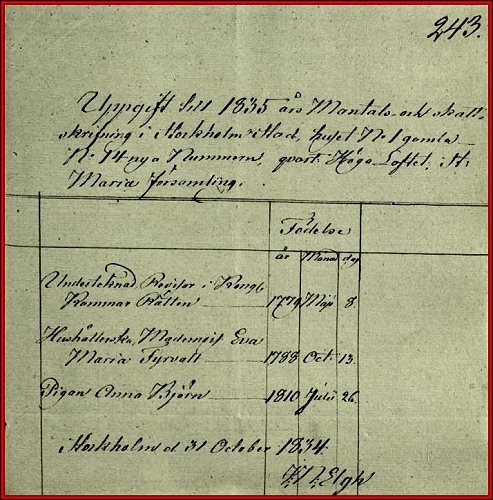 243.
Uppgift till 1835 års Mantals- och skatt-
skrifning i Stockholms Stad, huset No 1 gamla
No 14 nya Nummern, qvart. Höga Loftet, i St
Maria församling.
Födelse
år Månad dag
Undertecknad Revisor i Kongl.
Kammar Rätten 1779 Maji 8.
Hushållerska, Mademois. Eva
Maria Fyrvall 1788 Oct. 13.
Pigan Anna Björn 1810 Julii 26.
Stockholm d. 31 October 1834.
Elgh